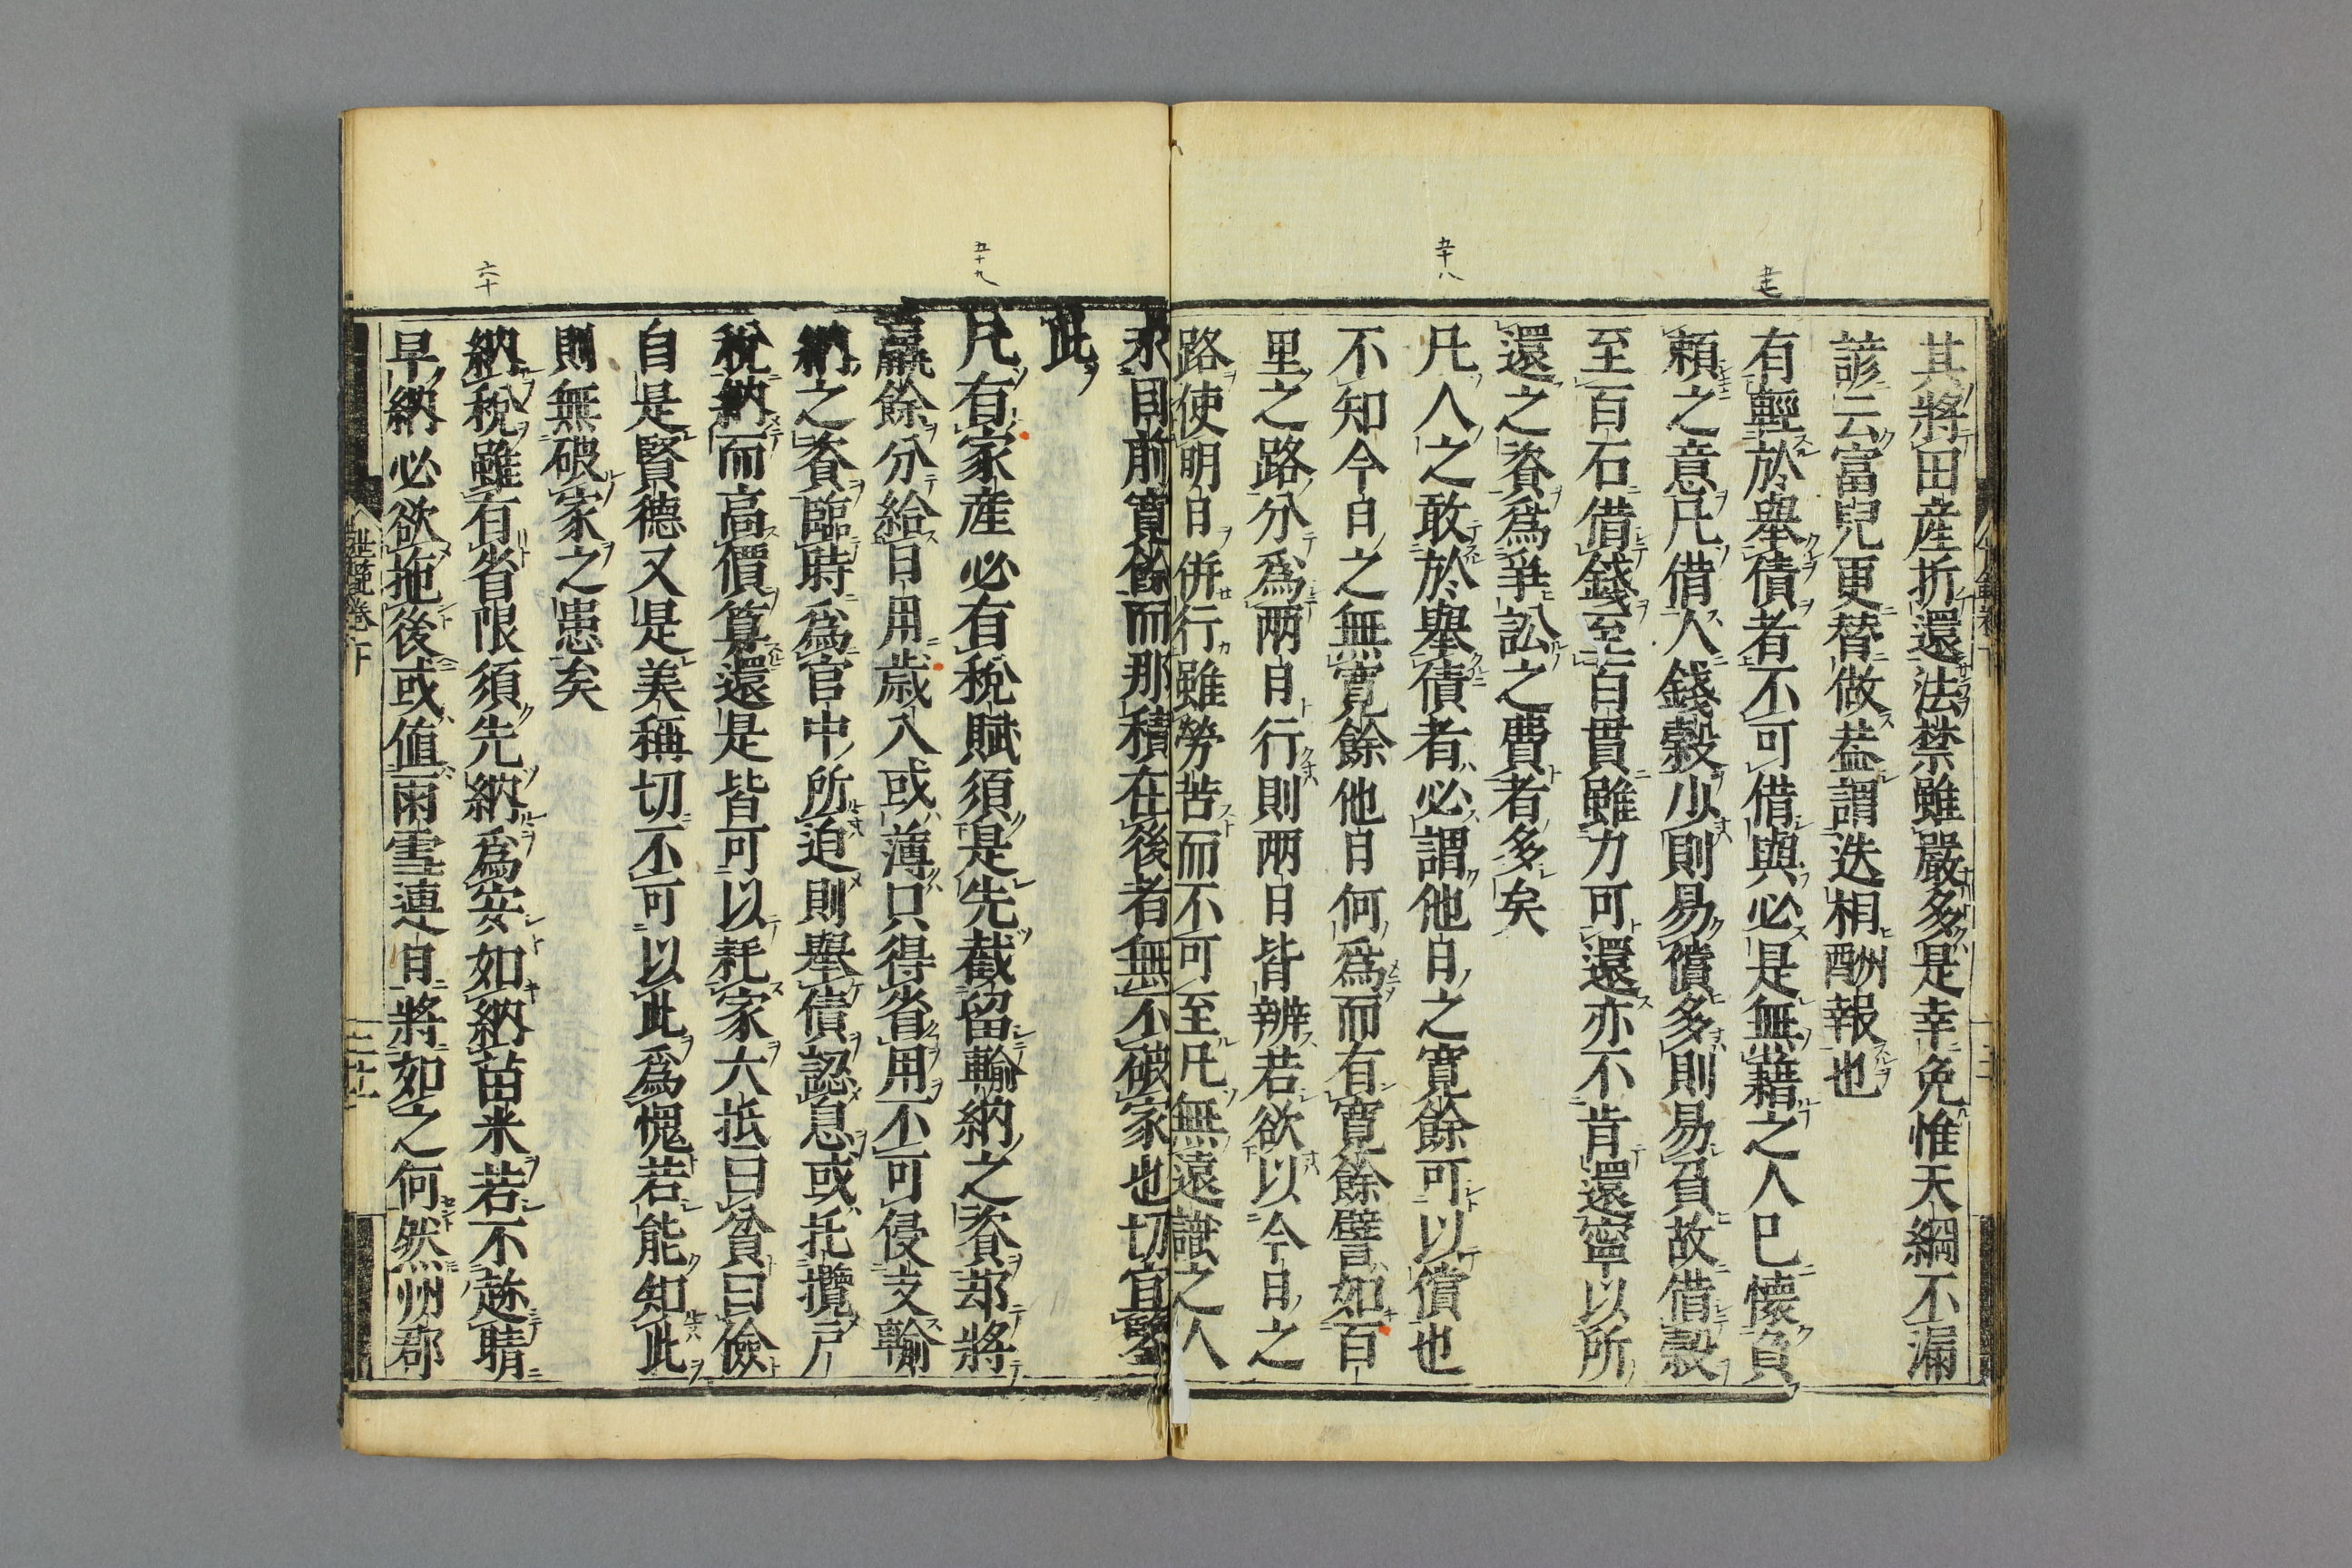 五十七
五十八
其將田産折還法禁雖嚴多是幸免惟天網不漏
諺云富兒更替做葢謂迭相酬報也
有輕於舉債者不可借與必是無藉之人巳懷負
頼之意凡借人錢穀少則易償多則易負故借穀
至百石借錢至百貫雖力可還亦不肯還寧以所
還之資爲爭訟之費者多矣
凡人之敢於舉債者必謂他日之寛餘可以償也
不知今日之無寛餘他日何爲而有寛餘譬如百
里之路分爲兩日行則兩日皆辨若欲以今日之
路使明日併行雖勞苦而不可至凡無遠識之人
五十九
六十
求目前寛餘而那積在後者無不破家也切宜鑒
此
凡有家産必有税賦須是先截留輸納之資却將
贏餘分給日用歳入或薄只得省用不可侵支輸
納之資臨時爲官中所迫則舉債認息或托攬戸
税納而高價算還是皆可以耗家大抵曰貧曰儉
自是賢德又是美稱切不可以此爲愧若能知此
則無破家之患矣
納税雖有省限須先納爲安如納苗米若不趂晴
早納必欲拖後或値雨雪連日將如之何然州郡
世範卷下